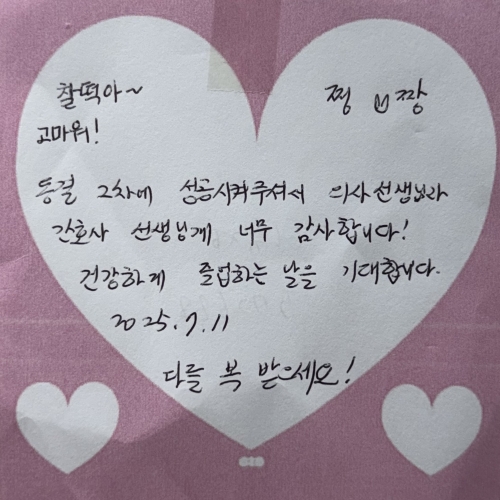 찰떡아~ 찡 짱
고마워!
동결 2차에 성공시켜주셔서 의사선생님과
간호사 선생님게 너무 감사합니다!
건강하게 졸업하는 날을 기대합니다.
2025.7.11
다들 복 받으세요!